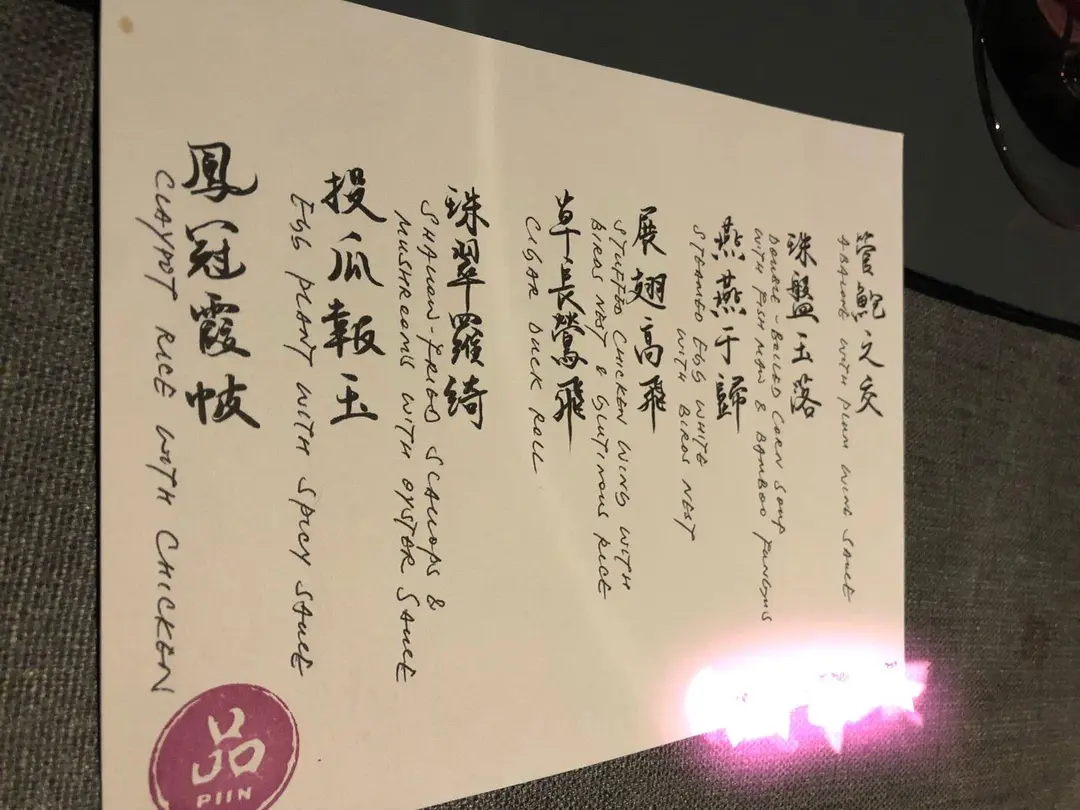 管鮑之交
ABALONE WITH PLUM WINE SAUCE
珠盤玉落
DOUBLE-BOILED CORN SOUP
WITH FISH MAW & BAMBOO FUNGUS
燕燕于歸
STEAMED EGG WHITE
WITH BIRDS NEST
展翅高飛
STUFFED CHICKEN WING WITH
BIRDS NEST & GLUTINOUS RICE
草長鶯飛
CIGAR DUCK ROLL
珠翠羅綺
SHALLOW-FRIED SCALLOPS &
MUSHROOMS WITH OYSTER SAUCE
投瓜報玉
EGG PLANT WITH SPICY SAUCE
鳳冠霞帔
CLAYPOT RICE WITH CHICKEN
品
PIIN